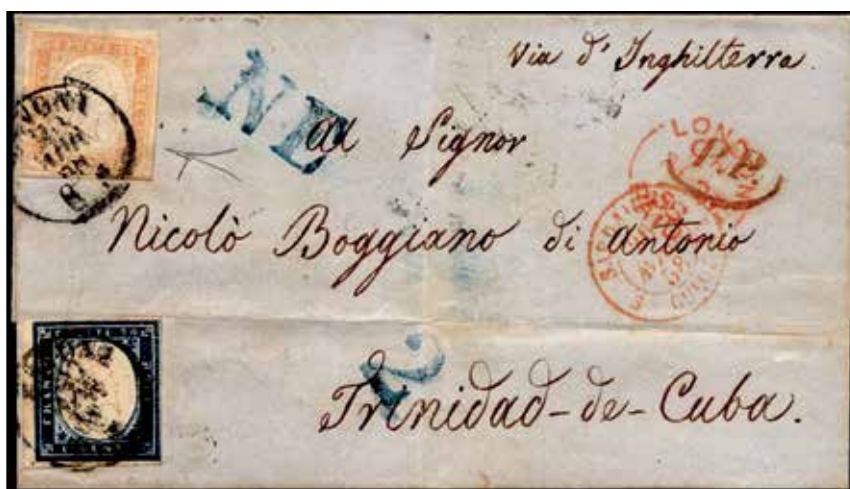 Via d'Inghilterra.
NE
Al Signor
LOND
P.P.
Nicolò Boggiano di Antonio
2
Trinidad-de-Cuba.